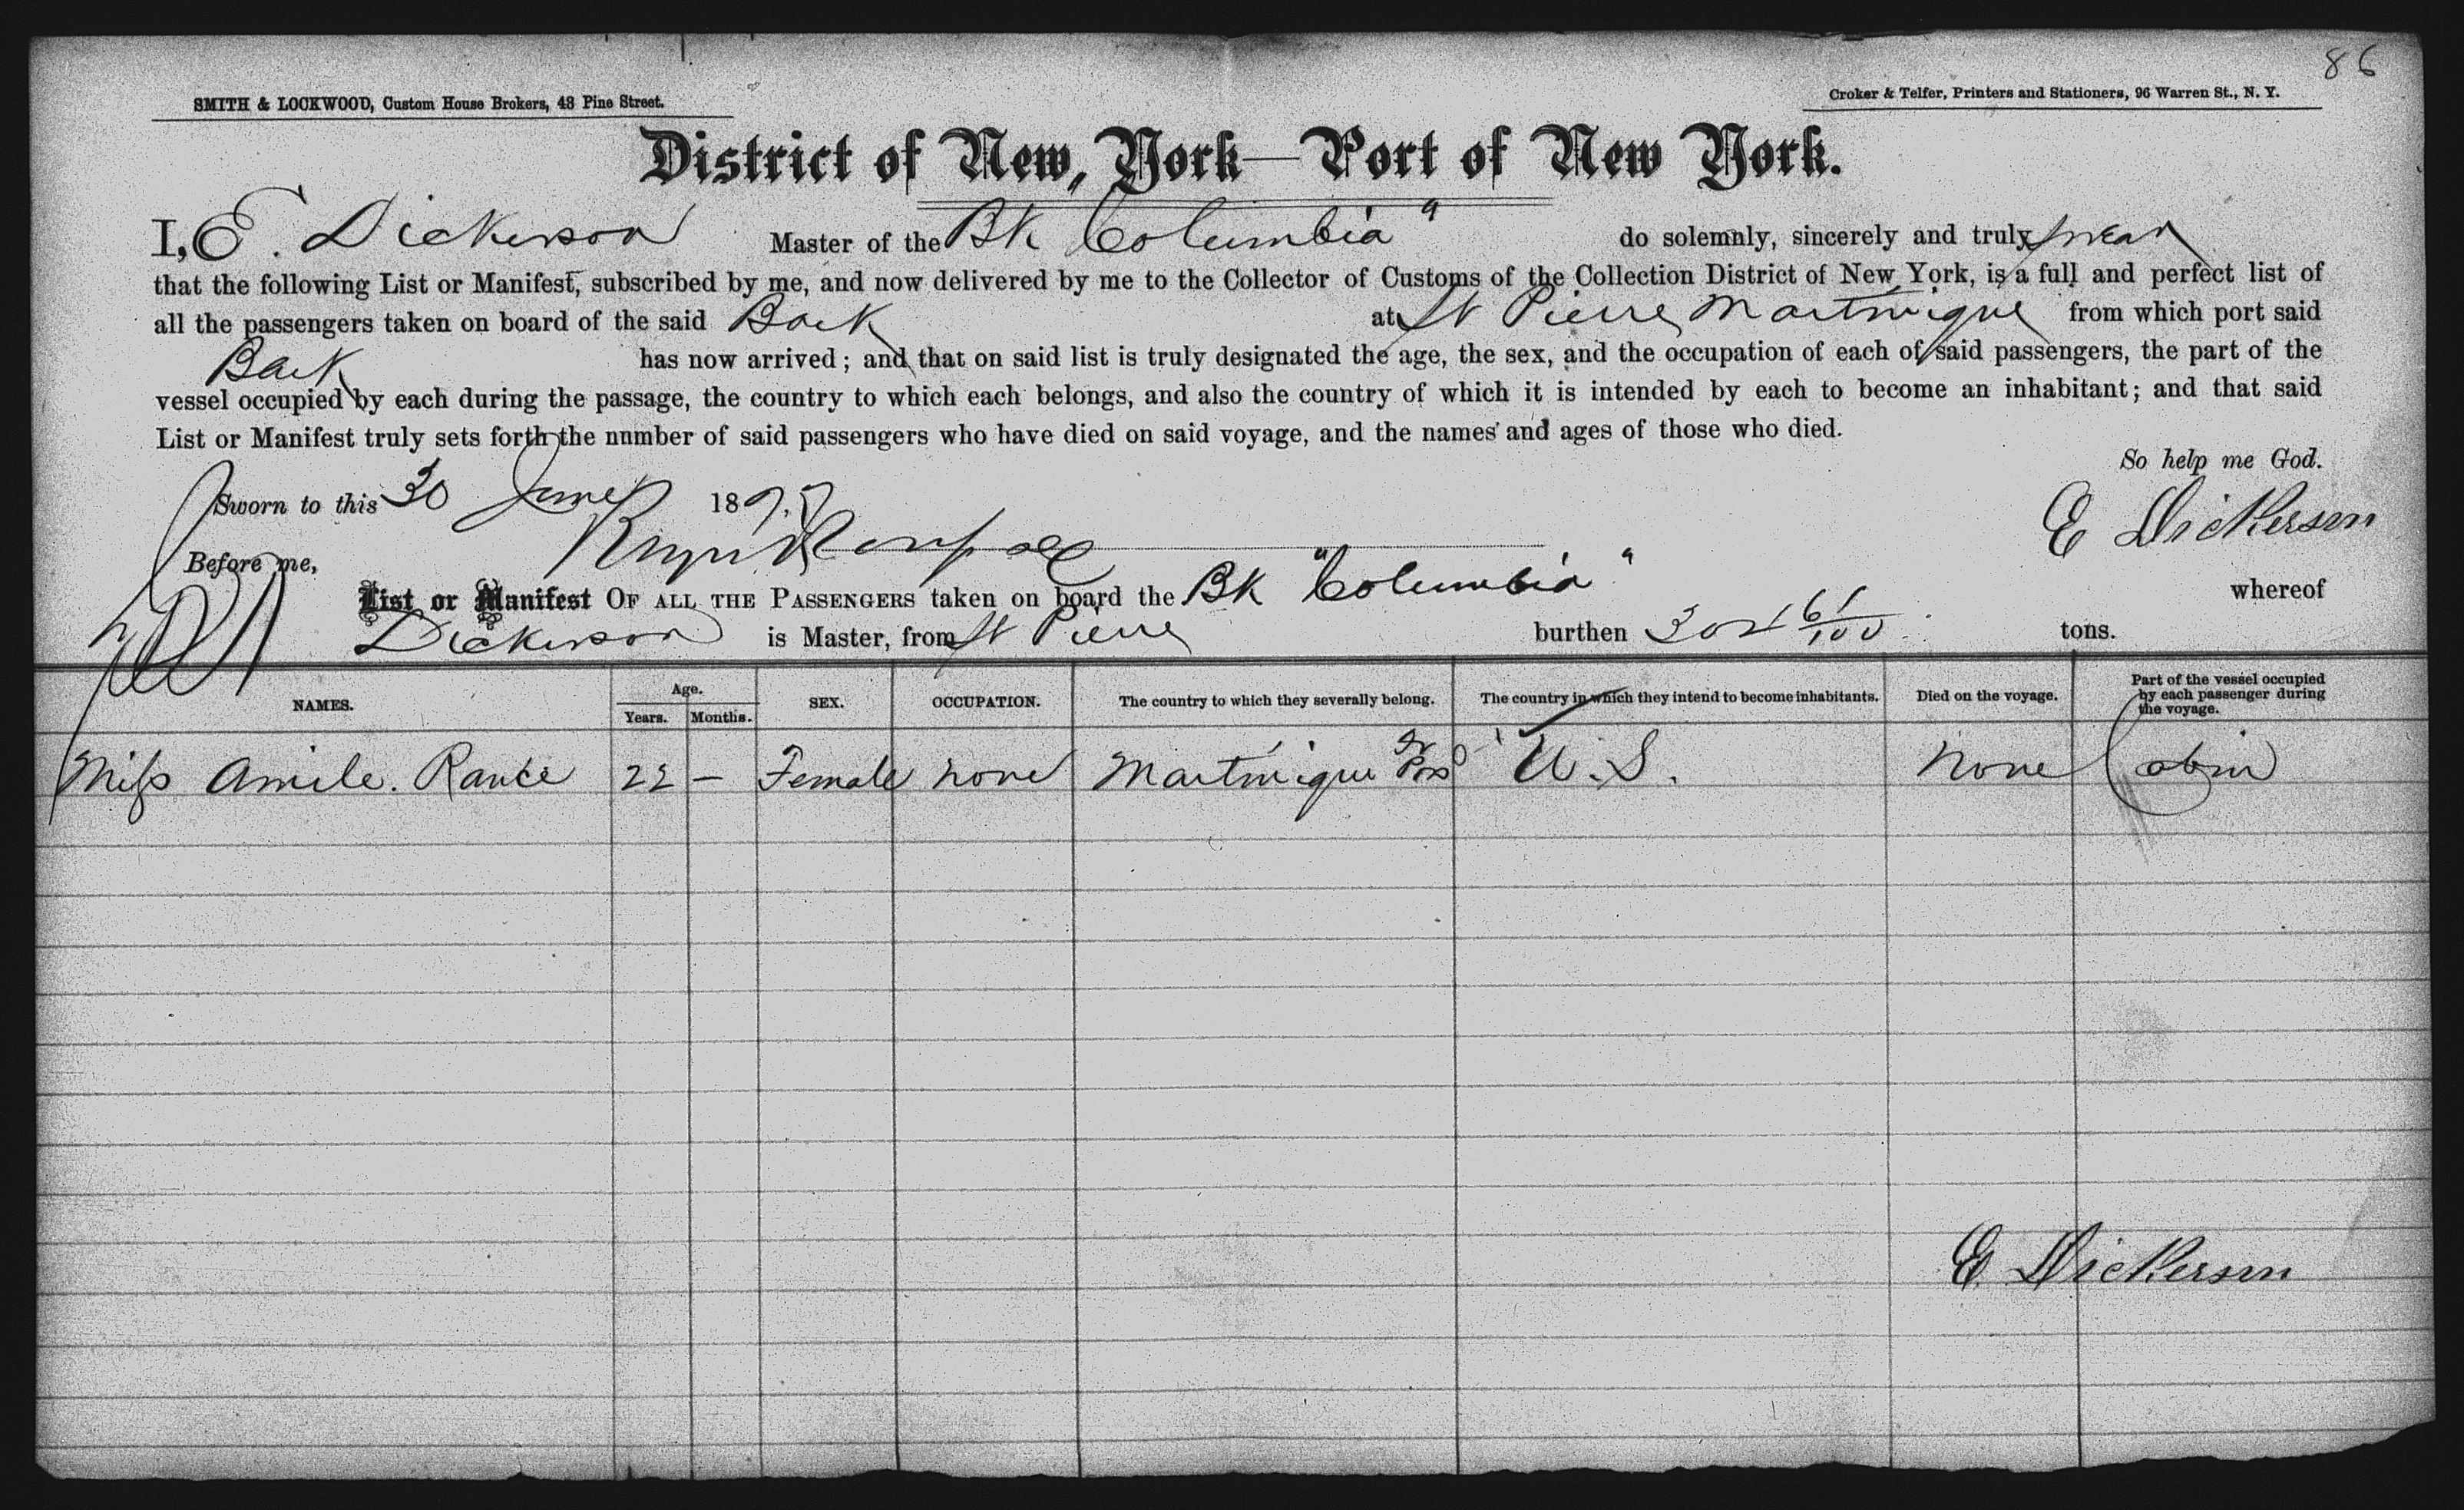 86
SMITH & LOCKWOOD, Custom House Brokers, 48 Pine Street.
Croker & Telfer, Printers and Stationers, 96 Warren St., N. Y.
District of New York—Port of New York.
I, E. Dickerson Master of the Bk Columbia" do solemnly, sincerely and truly swear
that the following List or Manifest, subscribed by me, and now delivered by me to the Collector of Customs of the Collection District of New York, is a full and perfect list of
all the passengers taken on board of the said Bark at St Pierre Martinique from which port said
Bark has now arrived; and that on said list is truly designated the age, the sex, and the occupation of each of said passengers, the part of the
vessel occupied by each during the passage, the country to which each belongs, and also the country of which it is intended by each to become an inhabitant; and that said
List or Manifest truly sets forth the number of said passengers who have died on said voyage, and the names and ages of those who died.
So help me God.
Sworn to this 30 June 189
E Dickerson
Before me,
List or Manifest OF ALL THE PASSENGERS taken on board the Bk "Columbia" whereof
Dickerson is Master, from St Pierre burthen 302 61/100 tons.
NAMES. Age. Years. Months. SEX. OCCUPATION. The country to which they severally belong. The country in which they intend to become inhabitants. Died on the voyage. Part of the vessel occupied by each passenger during the voyage.
Miss Amile. Rante 22 — Female none Martinique Fr Pos U.S. None Cabin
E Dickerson